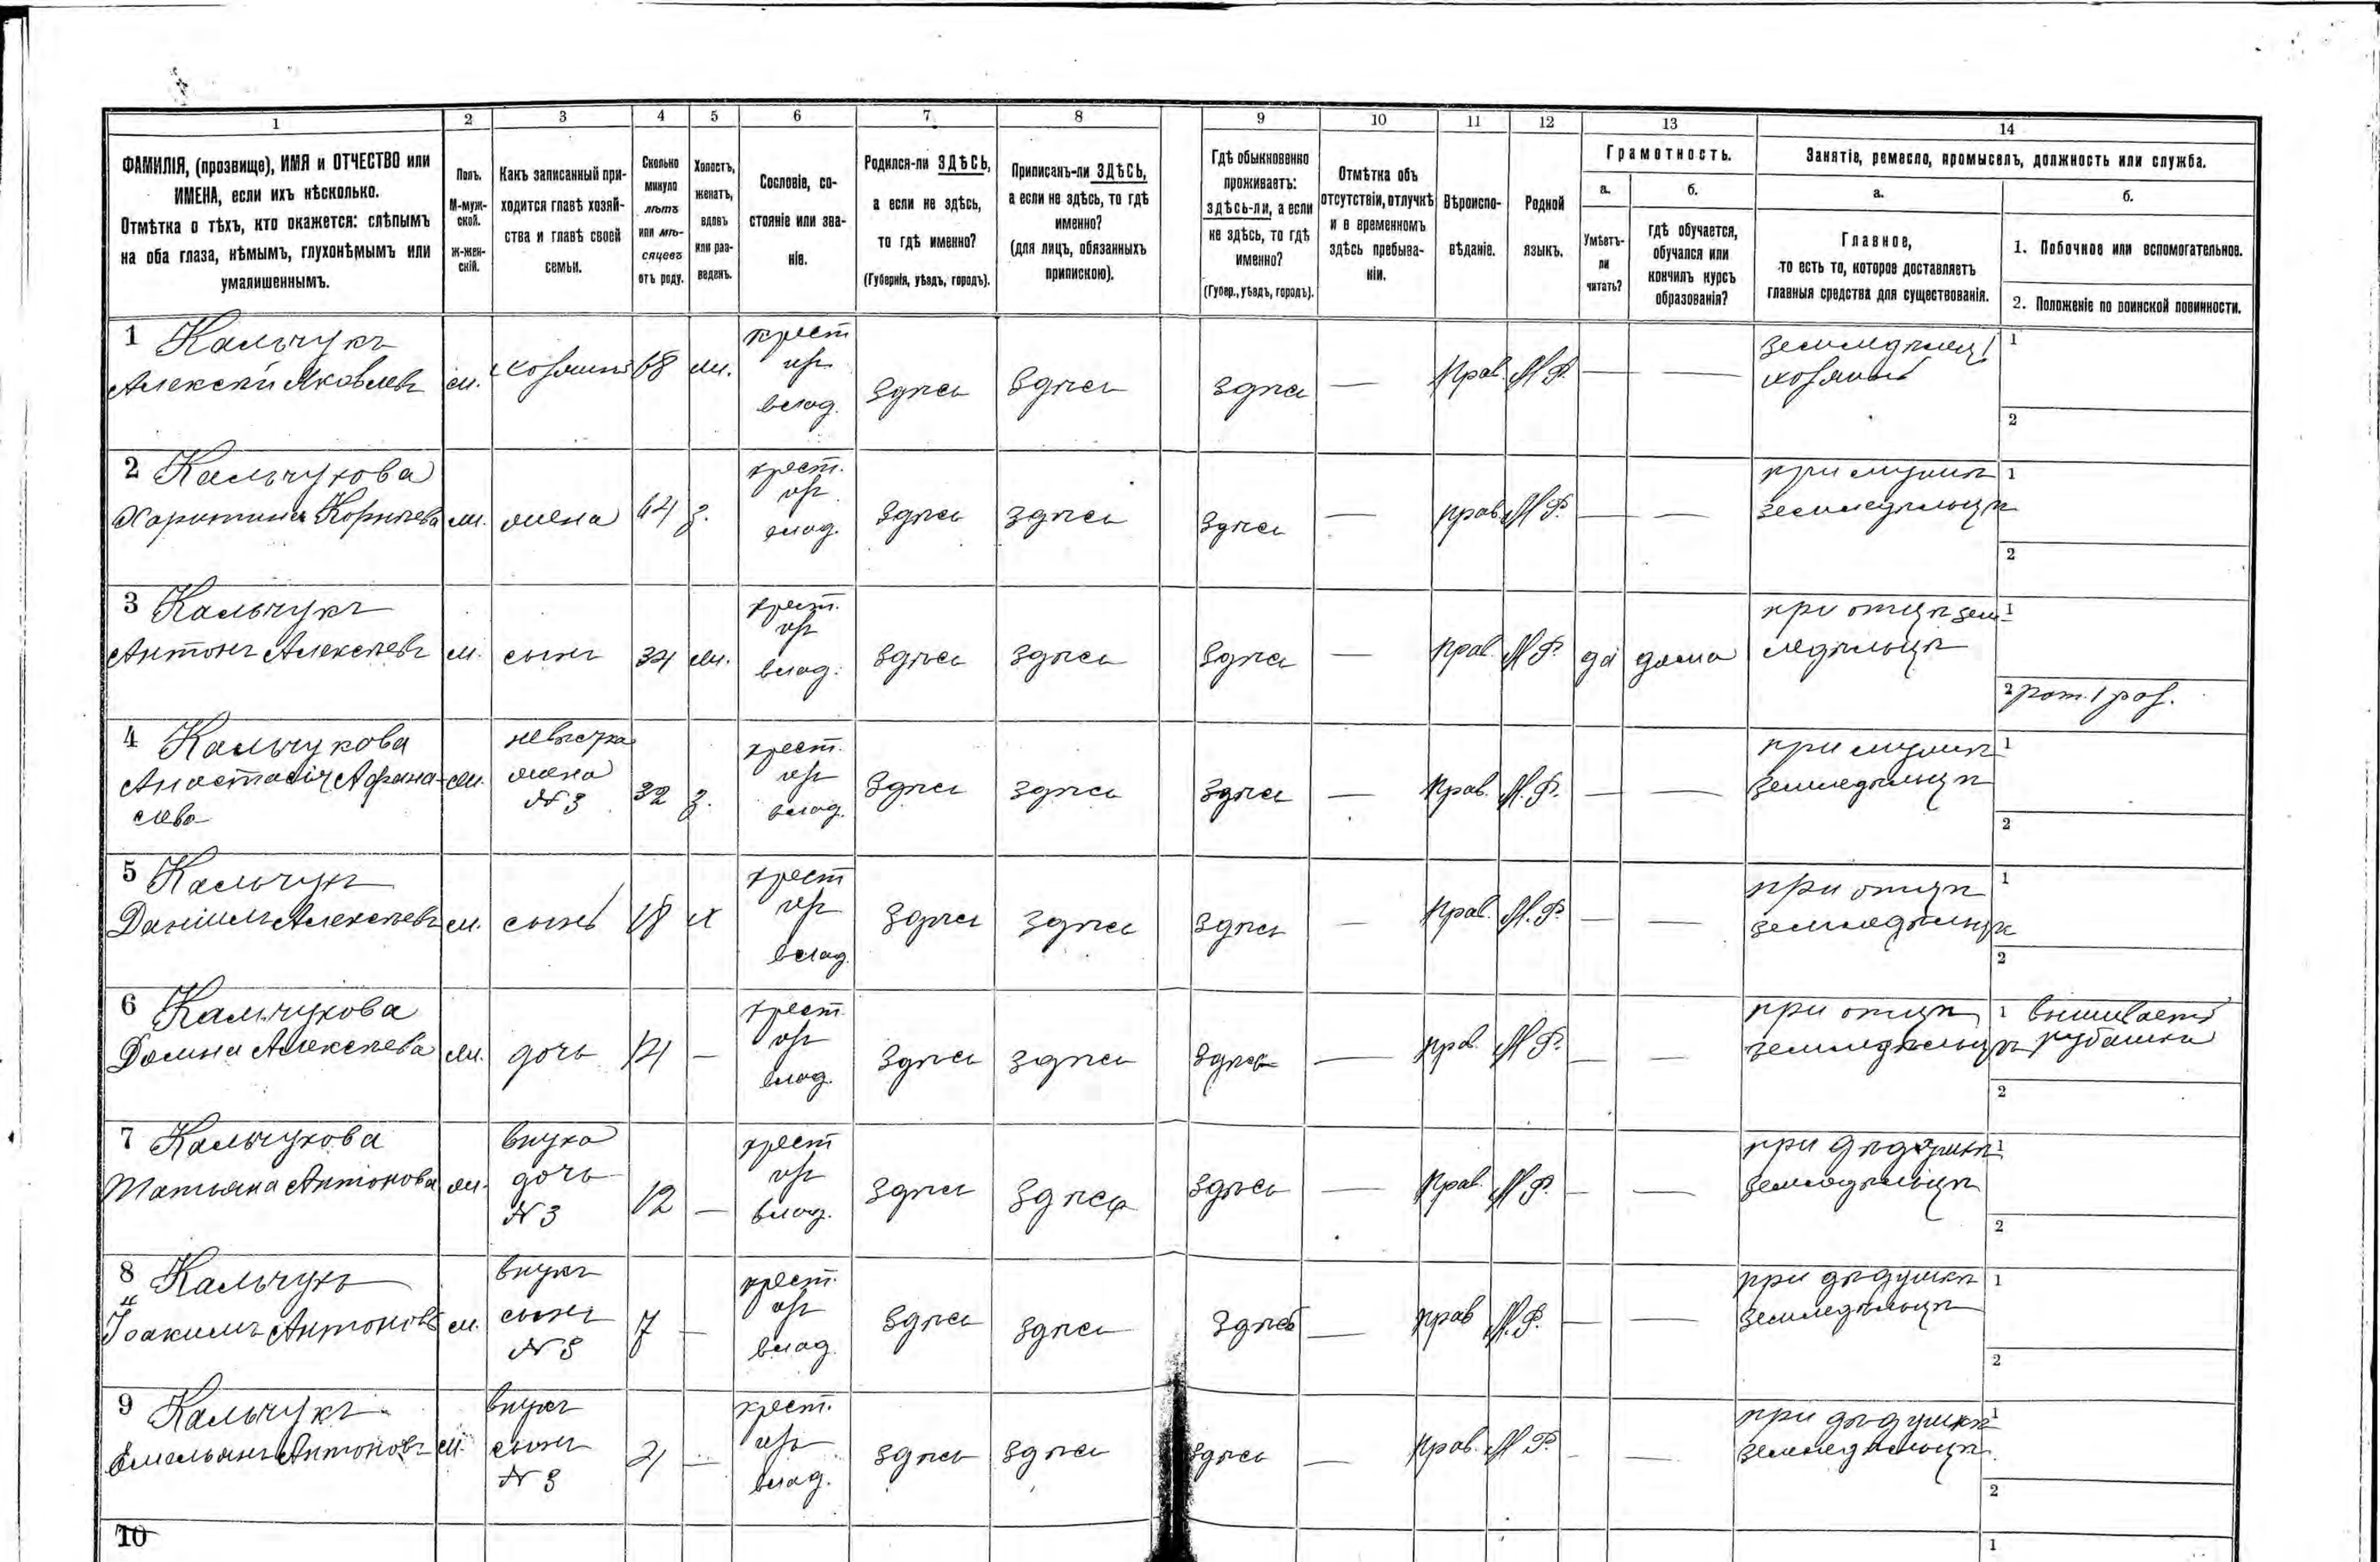 1 2 3 4 5 6 7 8 9 10 11 12 13 14
ФАМИЛІЯ, (прозвище), ИМЯ и ОТЧЕСТВО или
ИМЕНА, если ихъ нѣсколько.
Отмѣтка о тѣхъ, кто окажется: слѣпымъ
на оба глаза, нѣмымъ, глухонѣмымъ или
умалишеннымъ.
Полъ.
М-муж-
ской.
Ж-жен-
скій.
Какъ записанный при-
ходится главѣ хозяй-
ства и главѣ своей
семьи.
Сколько
минуло
лѣтъ
или мѣ-
сяцевъ
отъ роду.
Холостъ,
женатъ,
вдовъ
или раз-
веденъ.
Сословіе, со-
стояніе или зва-
ніе.
Родился-ли ЗДѢСЬ,
а если не здѣсь,
то гдѣ именно?
(Губернія, уѣздъ, городъ).
Приписанъ-ли ЗДѢСЬ,
а если не здѣсь, то гдѣ
именно?
(для лицъ, обязанныхъ
припискою).
Гдѣ обыкновенно
проживаетъ:
здѣсь-ли, а если
не здѣсь, то гдѣ
именно?
(Губер., уѣздъ, городъ).
Отмѣтка объ
отсутствіи, отлучкѣ
и в временномъ
здѣсь пребыва-
ніи.
Вѣроиспо-
вѣданіе.
Родной
языкъ.
Грамотность.
а.
Умѣетъ-
ли
читать?
б.
гдѣ обучается,
обучался или
кончилъ курсъ
образованія?
Занятіе, ремесло, промыселъ, должность или служба.
а.
Главное,
то есть то, которое доставляетъ
главныя средства для существованія.
б.
1. Побочное или вспомогательное.
2. Положеніе по воинской повинности.
1 Кальчукъ
Алексѣй Яковлевъ м. хозяинъ 68 ж. крест
влад. здѣсь здѣсь здѣсь — Прав. М.Р. — — земледѣлец
хозяинъ 1
2
2 Кальчукова
Харитина Корнѣева ж. жена 64 з. крест.
влад. здѣсь здѣсь здѣсь — прав. М.Р. — — при мужѣ
земледѣльцѣ 1
2
3 Кальчукъ
Антонъ Алексѣевъ м. сынъ 34 ж. крест.
влад. здѣсь здѣсь здѣсь — прав. М.Р. да дома при отцѣ зем
ледѣльцѣ 1
2 рат. 1 раз.
4 Кальчукова
Анастасія Афана-
сіева ж. невѣстка
жена
№ 3 32 з. крест.
влад. здѣсь здѣсь здѣсь — Прав. М.Р. — — при мужѣ
земледѣльцѣ 1
2
5 Кальчукъ
Даніилъ Алексѣевъ м. сынъ 18 х крест
влад. здѣсь здѣсь здѣсь — Прав. М.Р. — — при отцѣ
земледѣльцѣ 1
2
6 Кальчукова
Домна Алексѣева ж. дочь 14 — крест
влад. здѣсь здѣсь здѣсь — прав. М.Р. — — при отцѣ
земледѣльцѣ 1 вышиваетъ
рубашки
2
7 Кальчукова
Татьяна Антонова ж. внука
дочь
№ 3 12 — крест
влад. здѣсь здѣсь здѣсь — Прав. М.Р. — — при дѣдушкѣ
земледѣльцѣ 1
2
8 Кальчукъ
Іоакимъ Антоновъ м. внукъ
сынъ
№ 3 7 — крест.
влад. здѣсь здѣсь здѣсь — прав М.Р. — — при дѣдушкѣ
земледѣльцѣ 1
2
9 Кальчукъ
Емельянъ Антоновъ м. внукъ
сынъ
№ 3 4 — крест.
влад. здѣсь здѣсь здѣсь — прав. М.Р. — — при дѣдушкѣ
земледѣльцѣ 1
2
10 1